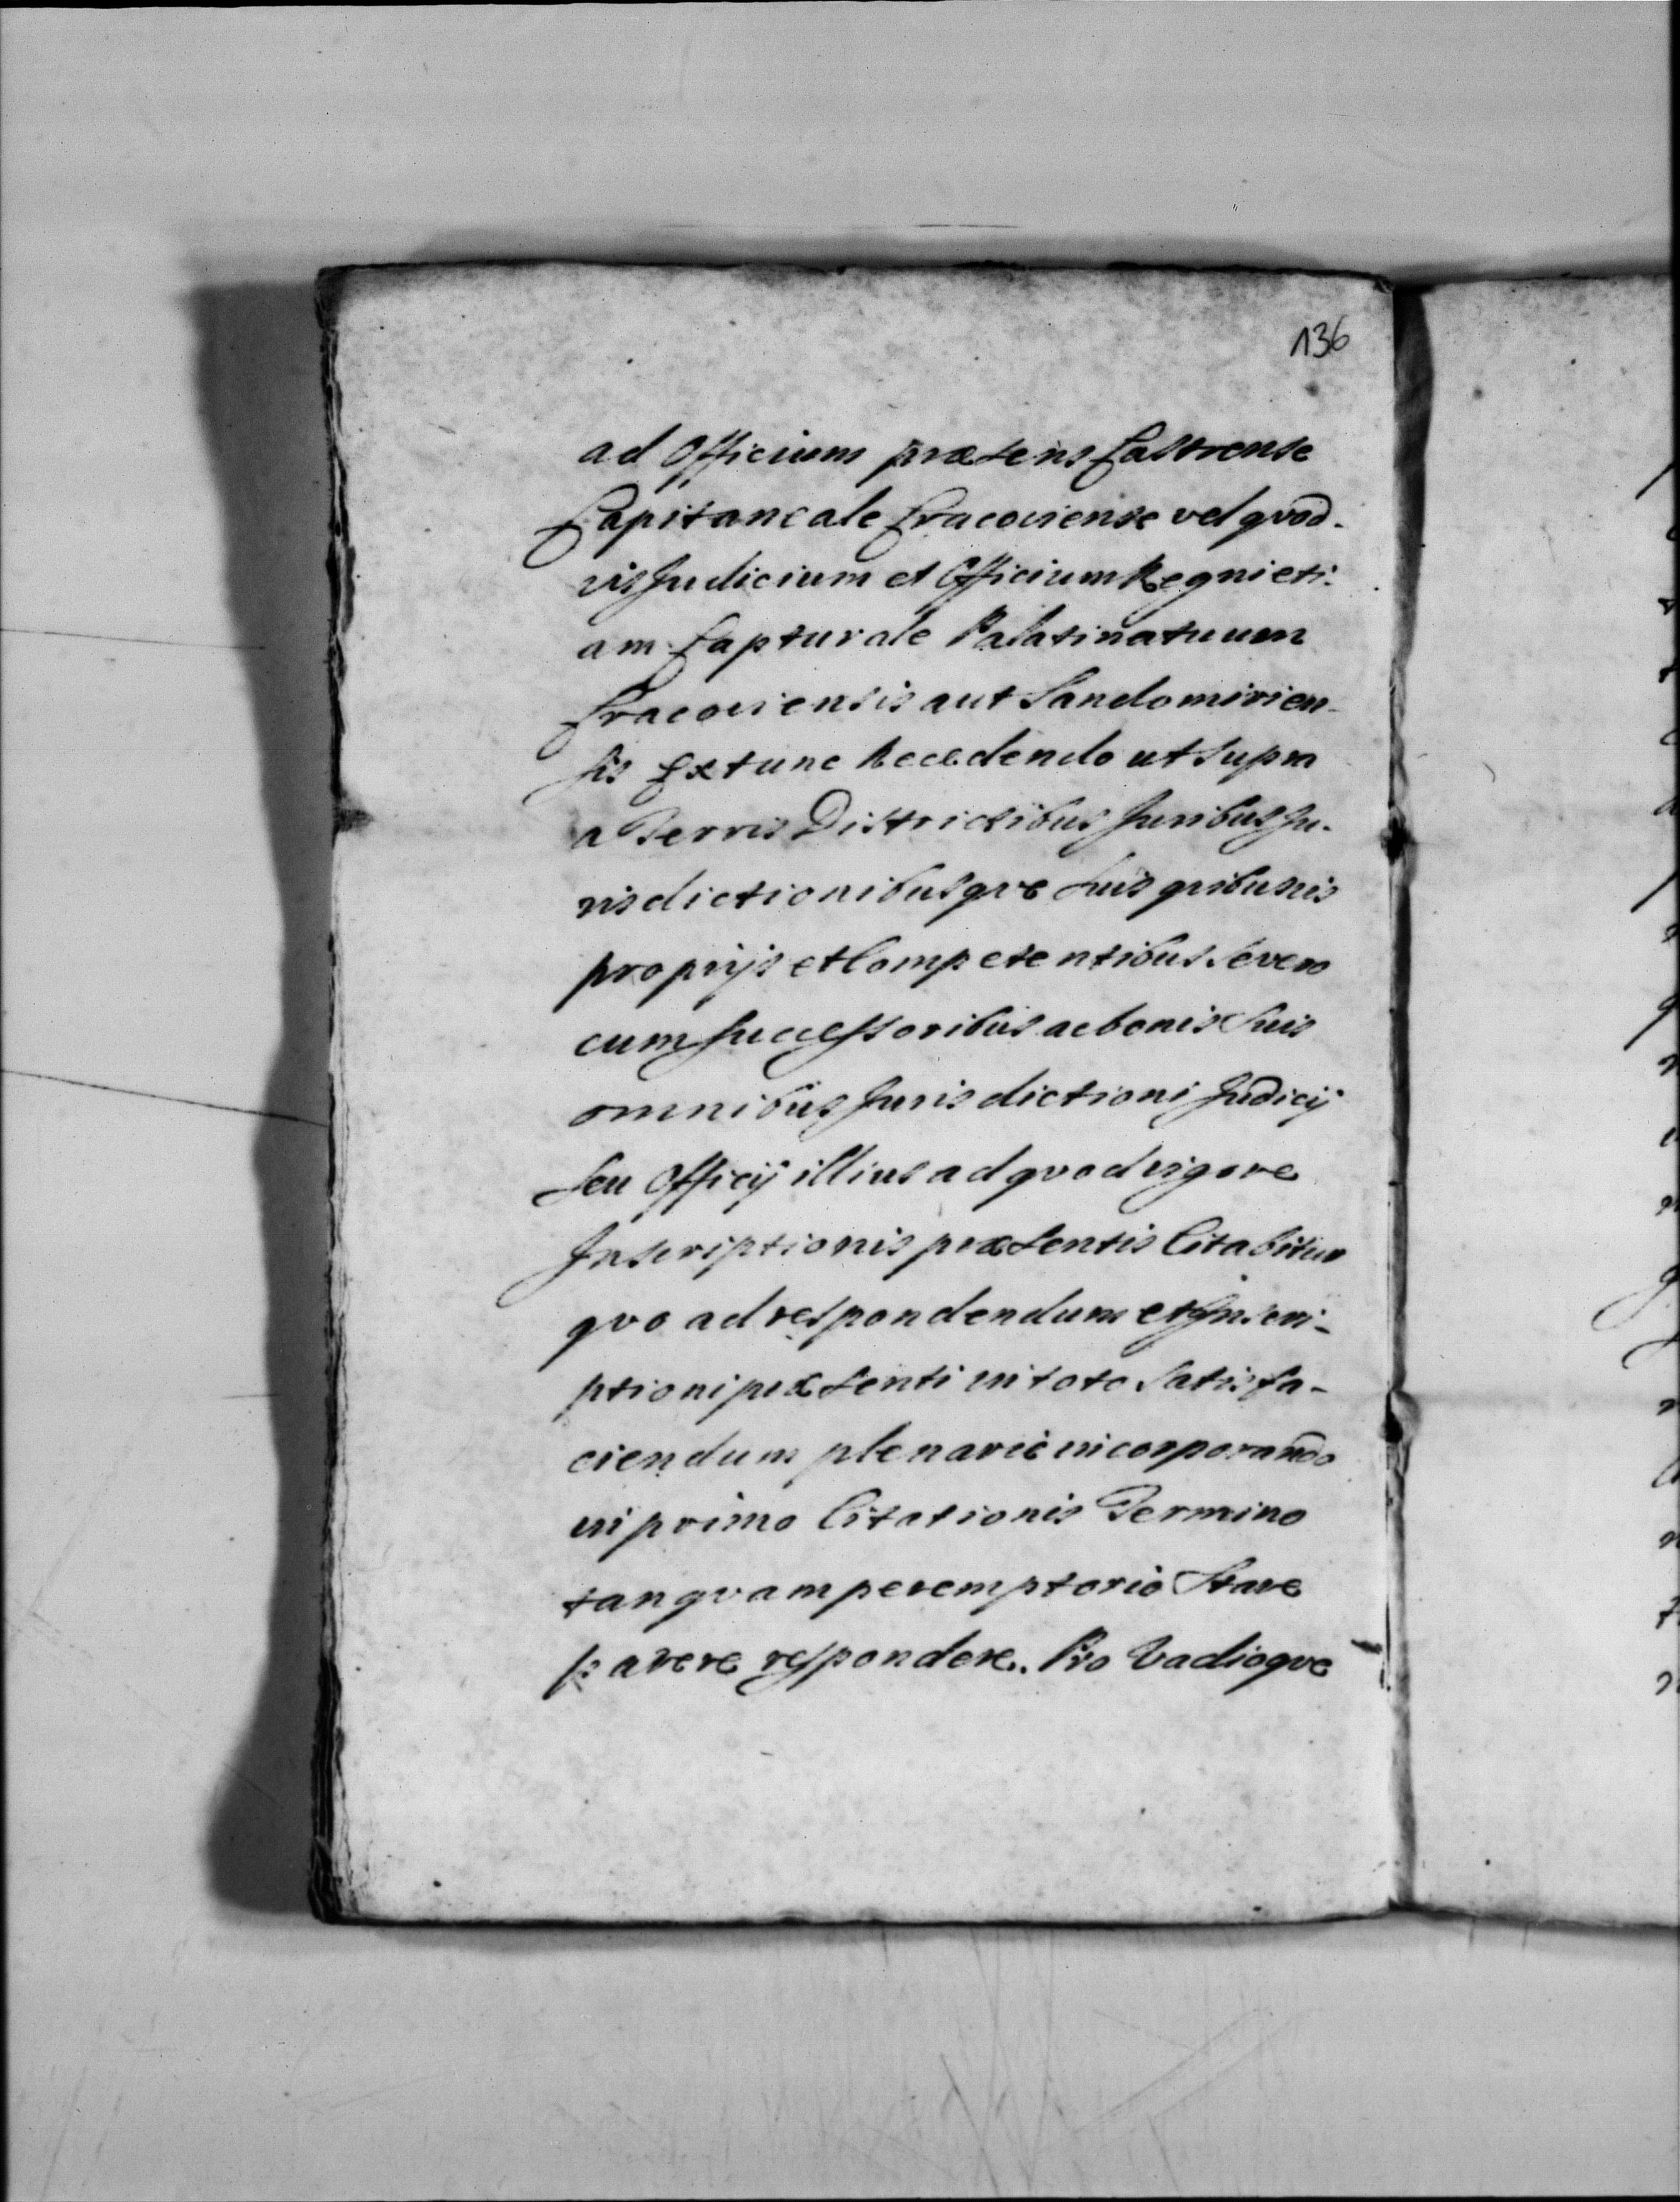 136
ad Officium præsens Castrense
Capitaneale Cracoviense vel qvod-
vis Judicium et Officium Regni eti-
am Capturale Palatinatuum
Cracoviensis aut Sandomirien-
sis Extunc Recedendo ut supra
a Terris Districtibus Juribus Ju-
risdictionibusqve suis qvibusvis
proprijs et Competentibus se vero
cum successoribus ac bonis suis
omnibus Jurisdictioni Judicij
seu Officij illius ad qvod vigore
Inscriptionis præsentis Citabitur
qvo ad respondendum et Inscri-
ptioni præsenti in toto satisfa-
ciendum plenarie incorporando
in primo Citationis Termino
tanqvam peremptorio stare
parere respondere. Pro Vadioqve